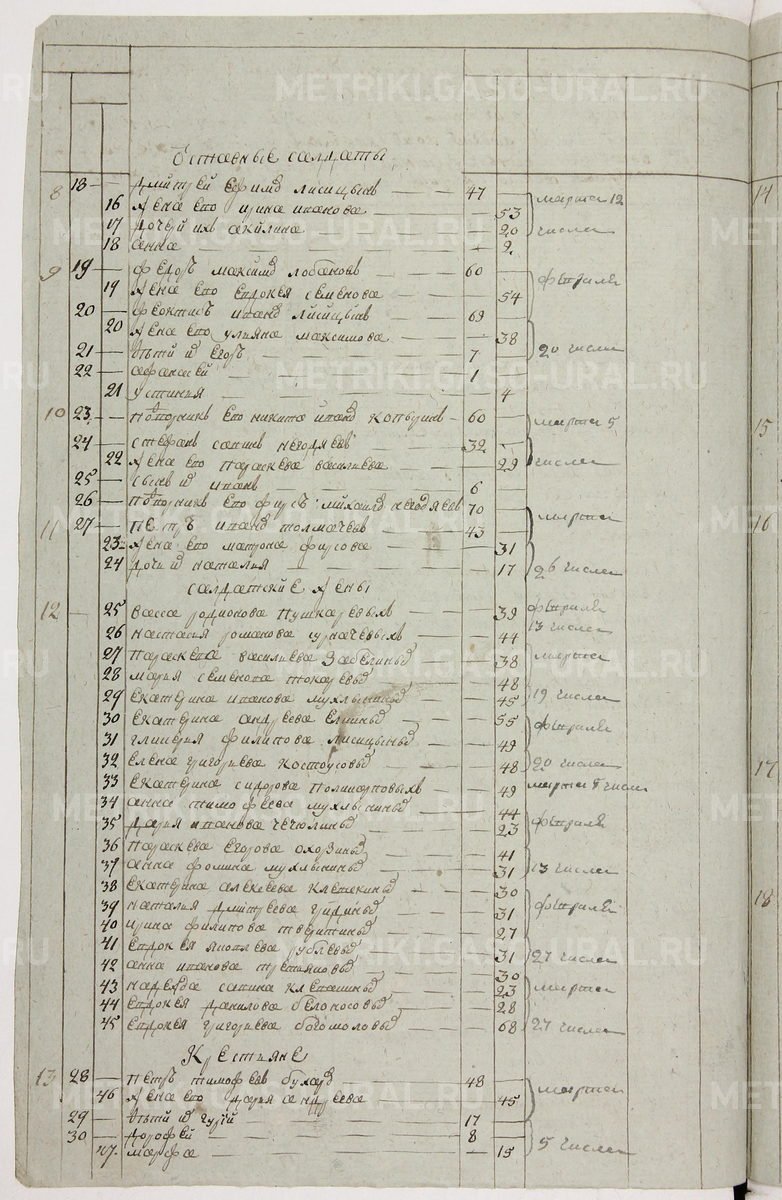 METRIKI.GASO-URAL.RU
Отставные салдаты
8 18 Дмитрей Ефимъ Лисицынъ 47 марта 12
16 Жена его Ирина Иванова 53
17 Дочери ихъ Акилина 20 числа
18 Анна 2
9 19 Федоръ Максимъ Лобановъ 60 февраля
19 Жена его Евдокея Семенова 54
20 Феоктистъ Иванъ Лисицынъ 69
20 Жена его Улияна Максимова 38
21 Дѣти и Егоръ 7 20 числа
22 Афанасей 1
21 Устиния 4
10 23 Подворникъ его Никита Иванъ 60 марта 5
24 Стефанъ Савинъ Негодяевъ 32
22 Жена его Параскева Василиева 29 числа
25 Сынъ и Иванъ 6
26 Подворникъ его Фирсъ Михаилъ Негодяевъ 70
11 27 Петръ Иванъ Толмачевъ 43 марта
23 Жена его Матрона Фирсова 31
24 Дочи и Наталия 17 26 числа
Салдатские жены
12 25 Васса Родионова Пушкаревыхъ 39 февраля
26 Настасия Романова 44 13 числа
27 Параскева Василиева 38 марта
28 Мария Семенова Токаревы 48
29 Екатерина Иванова Мухлынины 45 19 числа
30 Екатерина Андреева Елины 55 февраля
31 Гликерия Филипова Лисицыны 49
32 Елена Григориева Костоусовы 48 20 числа
33 Екатерина Сидорова Поликарповыхъ 49 марта числа
34 Анна Тимофеева Мухлынины 44
35 Дария Иванова Чечюлины 23 февраля
36 Параскева Егорова 41
37 Анна Фомина Мухлынины 31 13 числа
38 Екатерина Алексеева Клевакины 30
39 Наталия Дмитреева 31 февраля
40 Ирина Филипова Тверитины 27
41 Евдокея Яковлева Рублевы 31 27 числа
42 Анна Иванова Третьяковы 30
43 Надежда Савина Клевакины 23 марта
44 Евдокея Данилова Белоносовы 28
45 Евдокея Григориева Богомоловы 68 27 числа
Крестьяне
13 28 Петръ Тимофеевъ 48 марта
46 Жена его Дария Андреева 45
29 Дѣти и Гурей 17
30 Дорофей 8
47 Марфа 15 5 числа
14
15
16
17
18